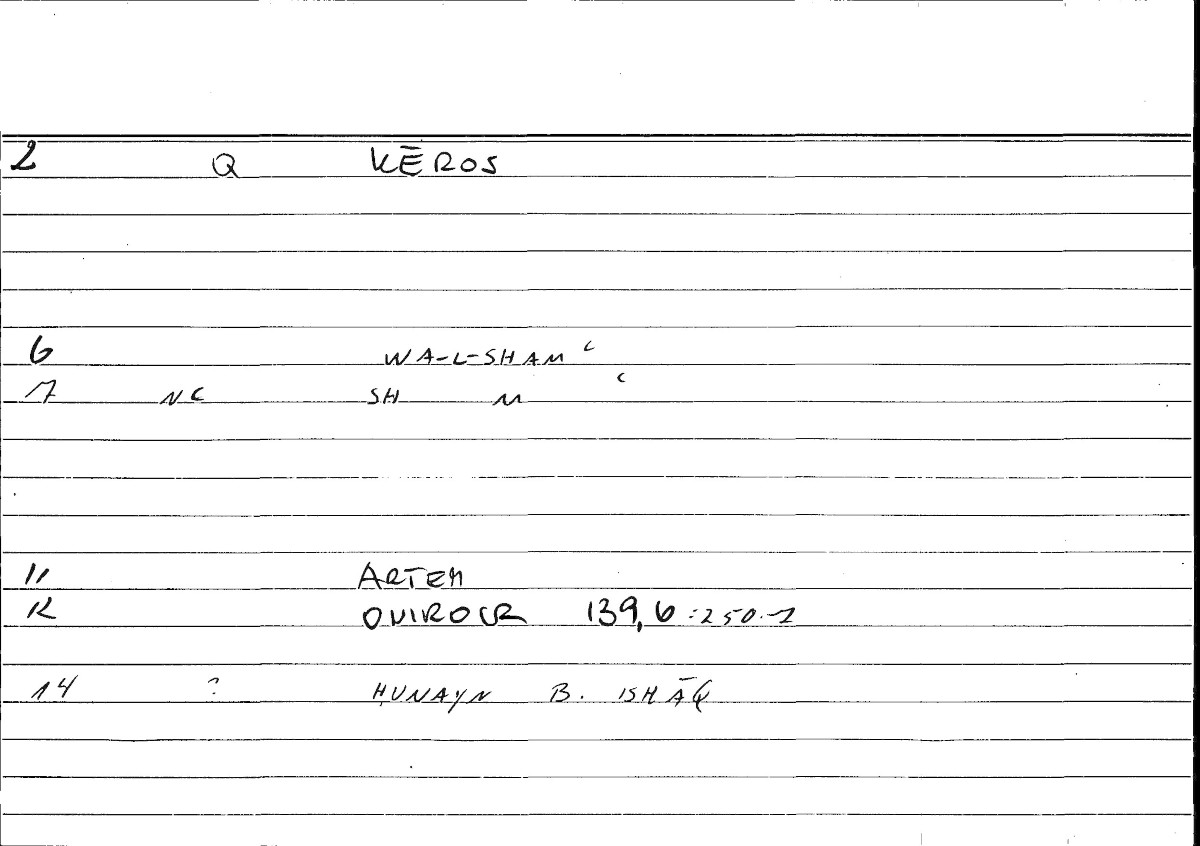 2 Q KĒROS
6 WA-L-SHAM ʿ
7 NC SH M ʿ
11 ARTEM
12 ONIROCR 139,6 :250.-1
14 ? ḤUNAYN B. ISḤĀQ